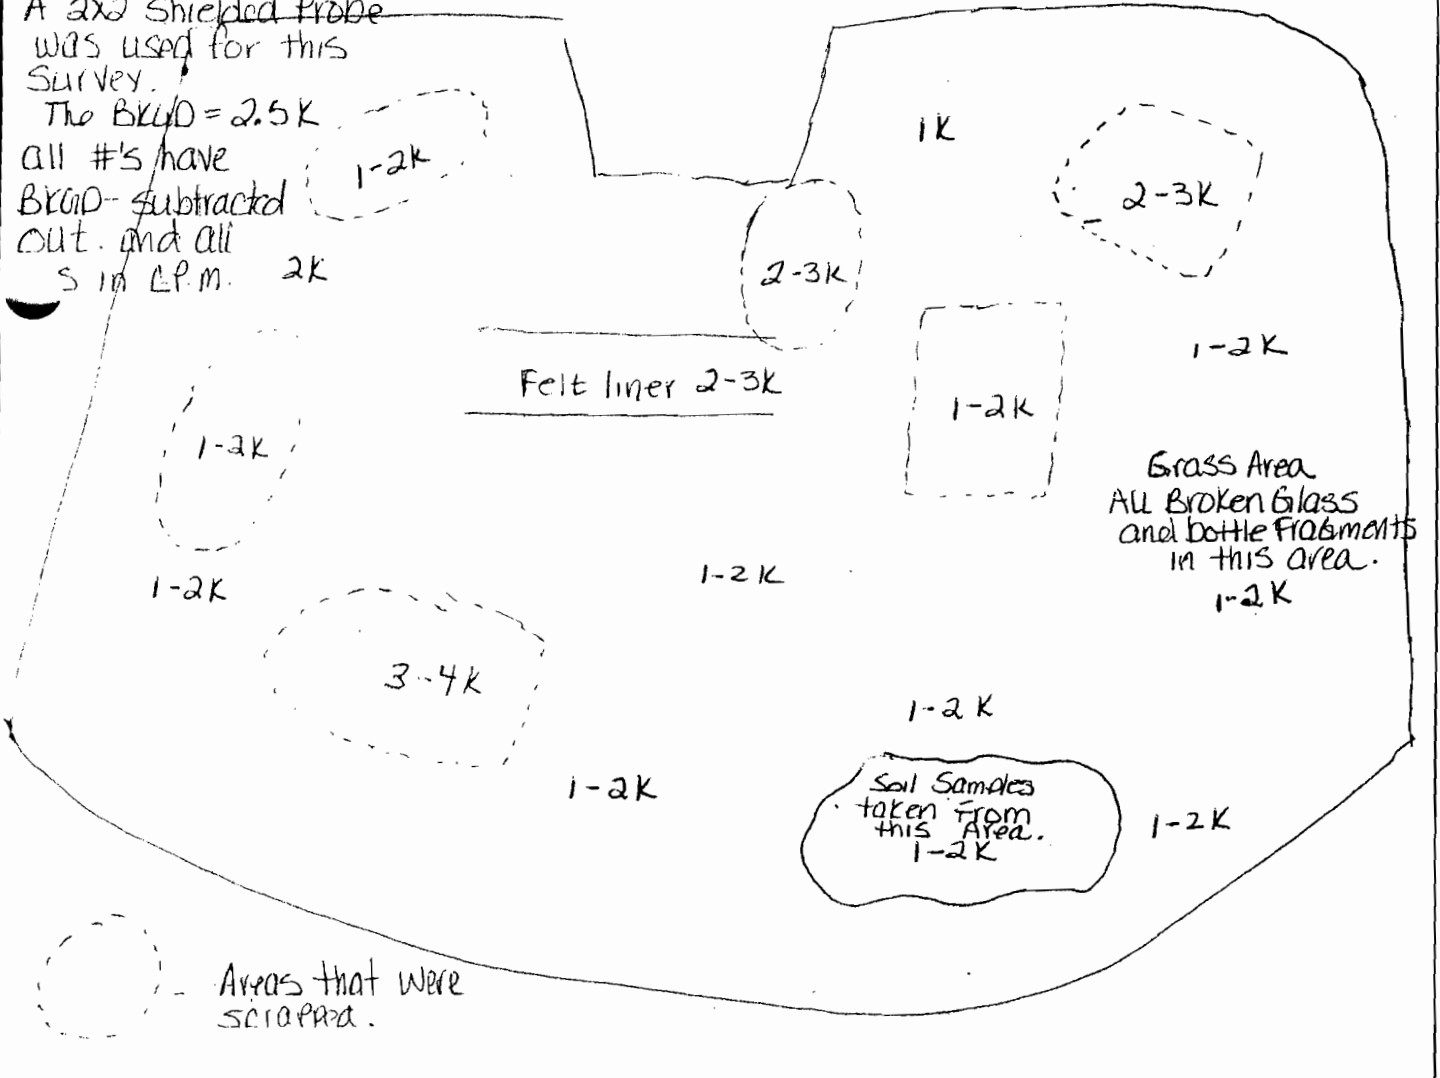 A 2x2 Shielded Probe
was used for this
Survey.
The BKGD = 2.5K
all #'s have
BKGD - subtracted
out. and all
s in C.P.M.
1-2K
2K
1K
2-3K
2-3K
1-2K
Felt liner 2-3K
1-2K
1-2K
Grass Area
All Broken Glass
and bottle Fragments
in this area.
1-2K
1-2K
1-2K
3-4K
1-2K
1-2K
Soil Samples
taken From
this Area.
1-2K
1-2K
Areas that were
scrapped.